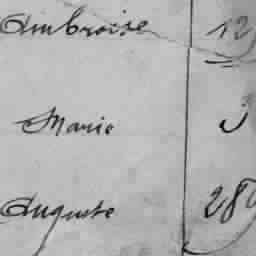 Ambroise 12
Marie 3
Auguste 289